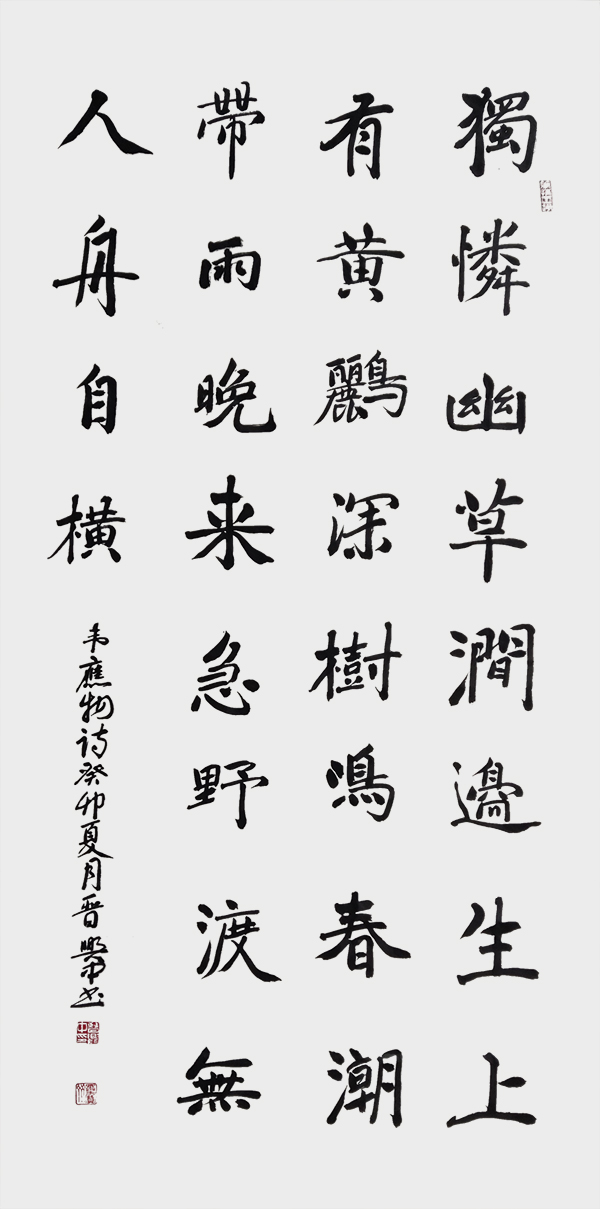 獨憐幽草澗邊生上
有黄鸝深樹鳴春潮
帶雨晚来急野渡無
人舟自横
韦應物诗癸卯夏月晋书